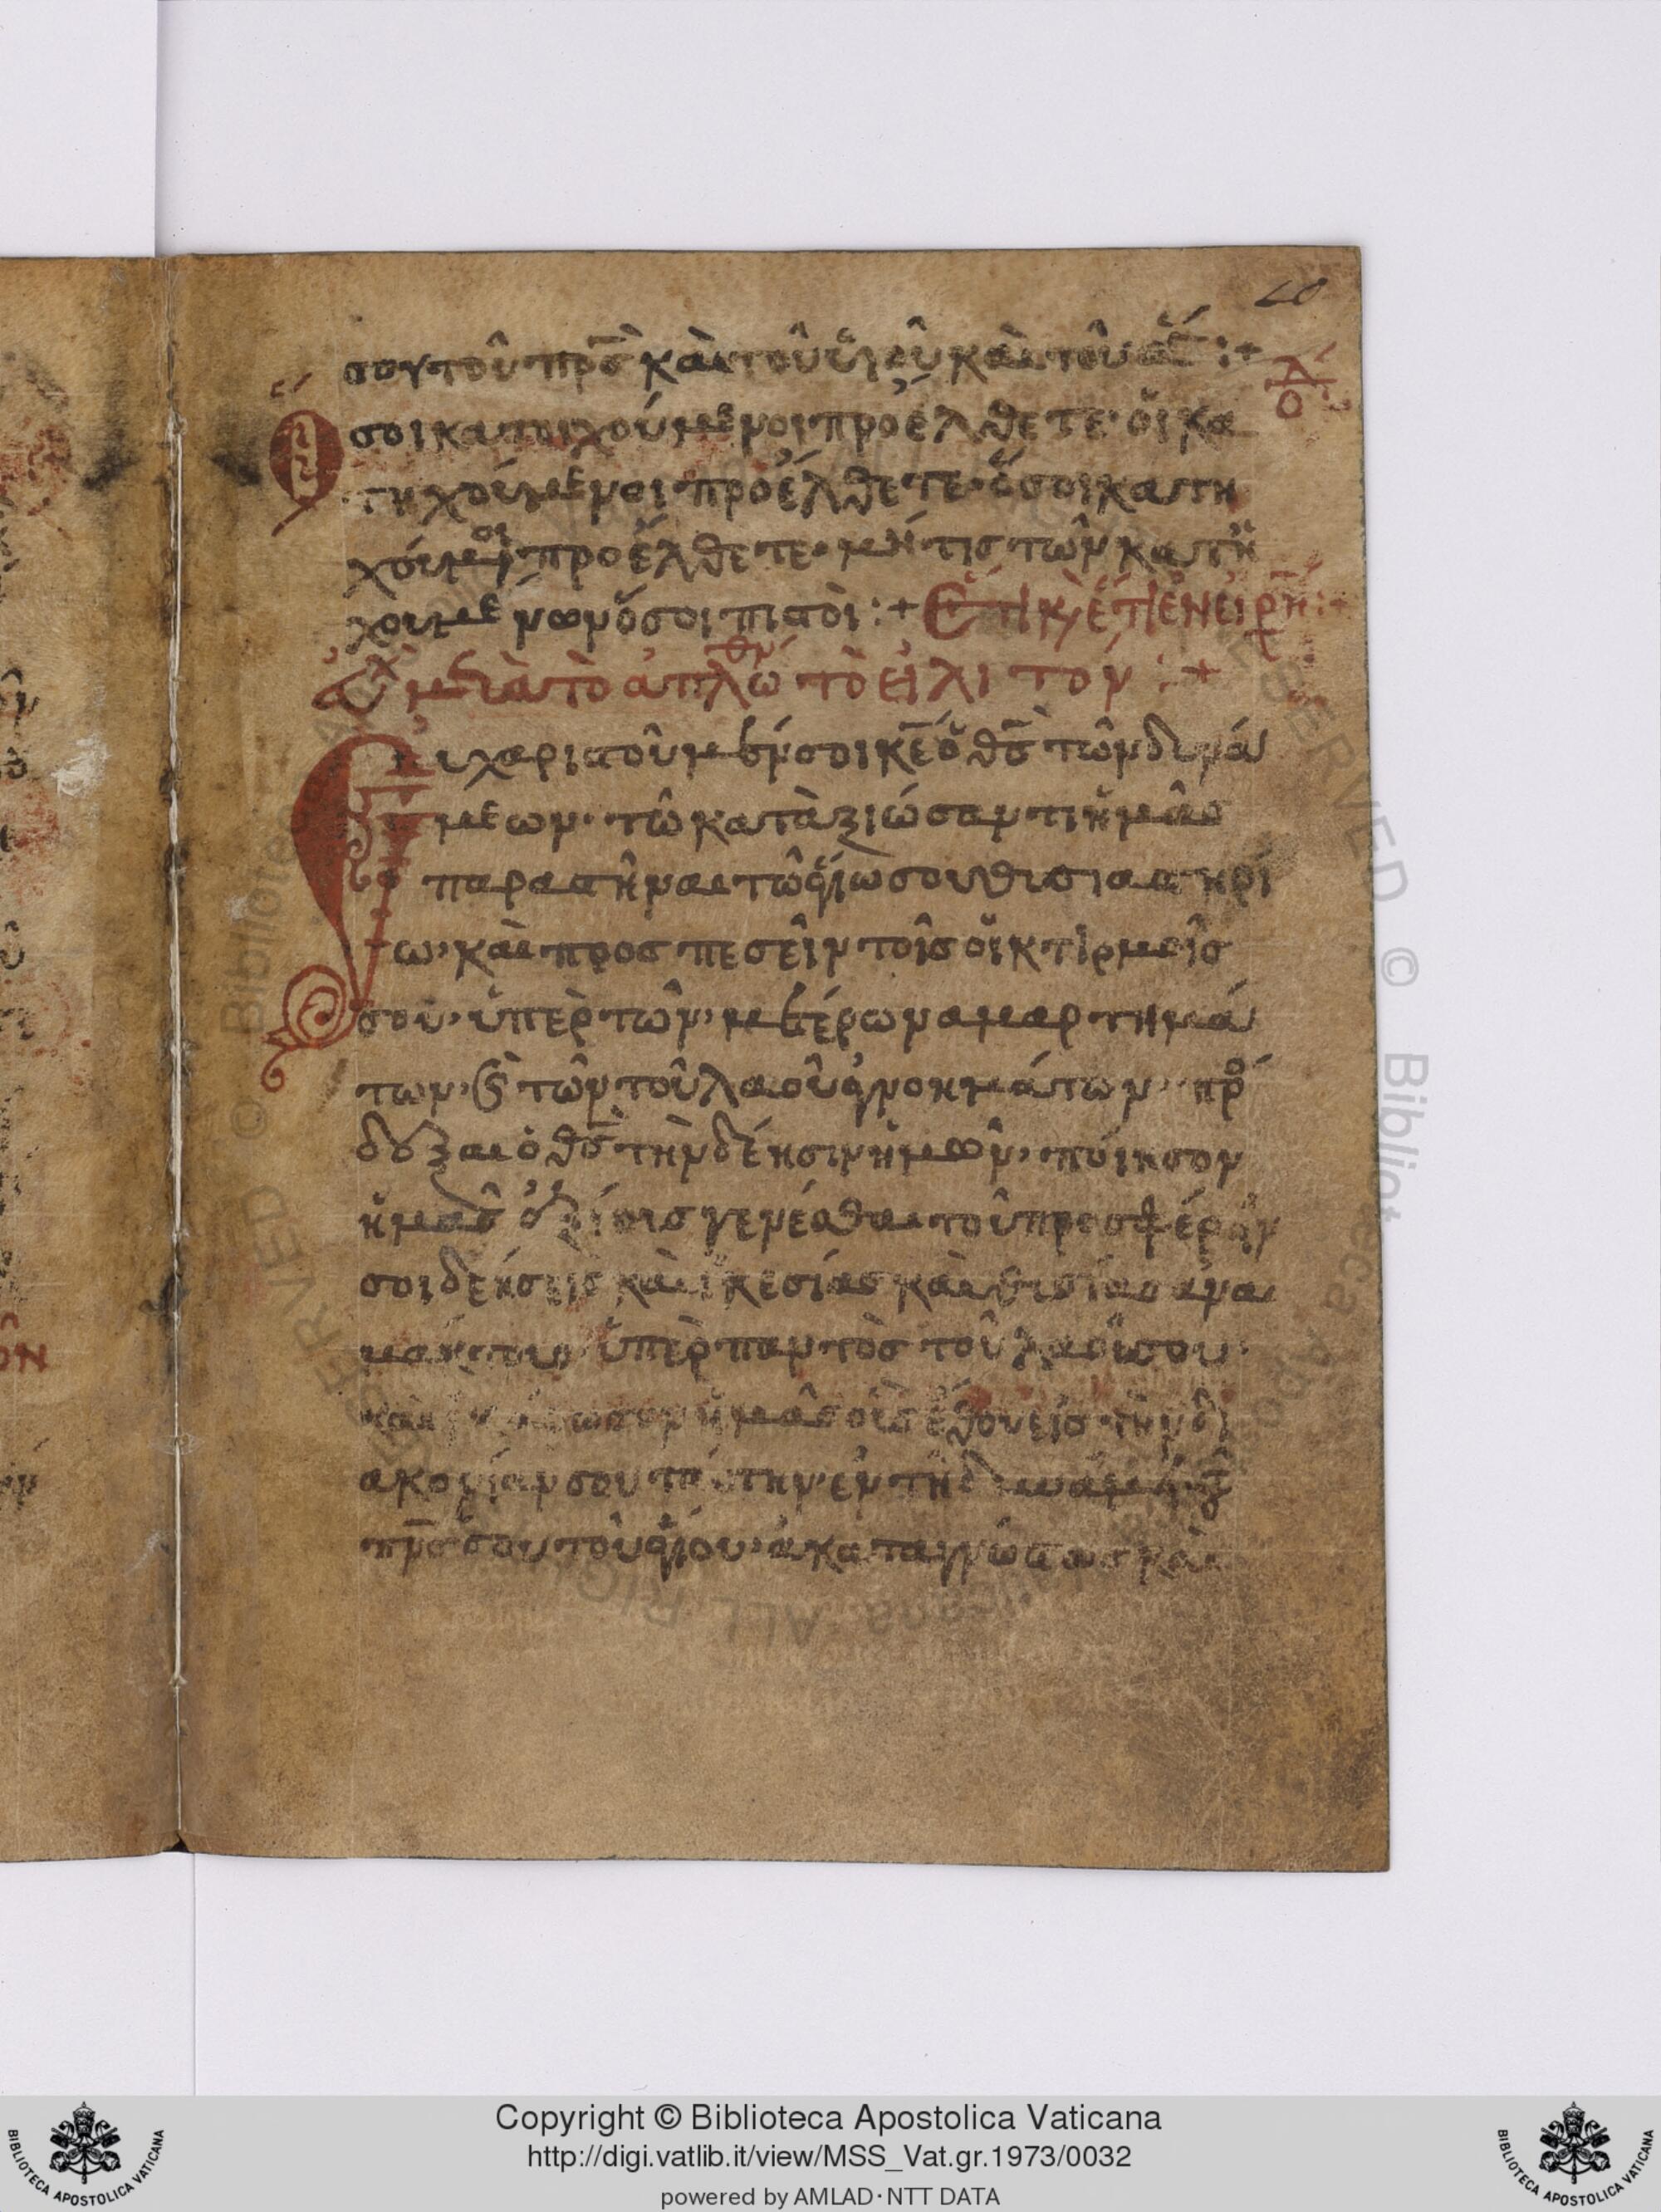 20
σου τοῦ πρ̅σ̀ καὶ τοῦ ὑιοῦ καὶ τοῦ ἁ :+
Δ/ο
Ὅσοι κατιχούμενοι προέλθετε· ὅι κα
τηχούμενοι προέλθετε· ὅσοι κατη
χούμοι προέλθετε· μή τισ τῶν κατη
χουμενων ὅσοι πιστοὶ :+ Ἔτι κ, ἔτι ἐν ειρή :+
Εὐχ μετὰ τὸ ἁπλωθην τὸ εἰλιτόν :+
Εὐχαριστοῦμέν σοι κ̅ε̅ ὁ θ̅σ̅ τῶν δυνά
μεων· τῶ καταξιώσαντι ἡμᾶσ
παραστῆναι τῶ ἁγίω σου θυσιαστηρί
ω· καὶ προσπεσεῖν τοῖσ οἰκτιρμοῖσ
σου· ὑπὲρ τῶν ἡμετέρων αμαρτημά
των· κ τῶν τοῦ λαοῦ ἀγνοημάτων· πρό
δεξαι ὁ θ̅σ̅ τὴν δέησιν ἡμῶν· ποίησον
ἡμᾶσ ἀξίουσ γενέσθαι τοῦ προσφέρειν
σοι δεήσεισ καὶ ἱκεσίασ καὶ θυσίασ ἀναι
μάκτουσ ὑπὲρ παντὸσ τοῦ λαοῦ σου·
καὶ ἱκάνωσον ἡμᾶσ οὓσ ἔθου εἰσ τὴν δι
ακονίαν σου ταύτην· ἐν τῆ δυνάμει τ
π̅ν̅σ̅ σου τοῦ ἁγίου· ἀκαταγνώστωσ καὶ
Copyright © Biblioteca Apostolica Vaticana
http://digi.vatlib.it/view/MSS_Vat.gr.1973/0032
powered by AMLAD·NTT DATA
BIBLIOTECA APOSTOLICA VATICANA
BIBLIOTECA APOSTOLICA VATICANA